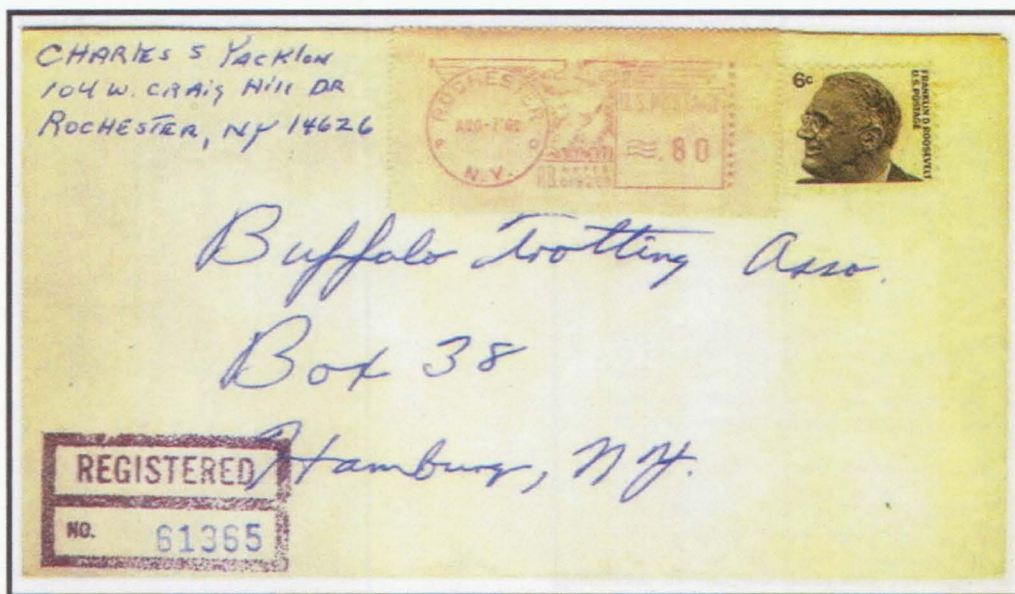 CHARLES S YACKLON
104 W. CRAIG HILL DR
ROCHESTER, NY 14626
ROCHESTER
N.Y.
U.S. POSTAGE
.80
6c
FRANKLIN D. ROOSEVELT
U.S. POSTAGE
Buffalo Trotting Asso.
Box 38
Hamburg, N.Y.
REGISTERED
NO. 61365